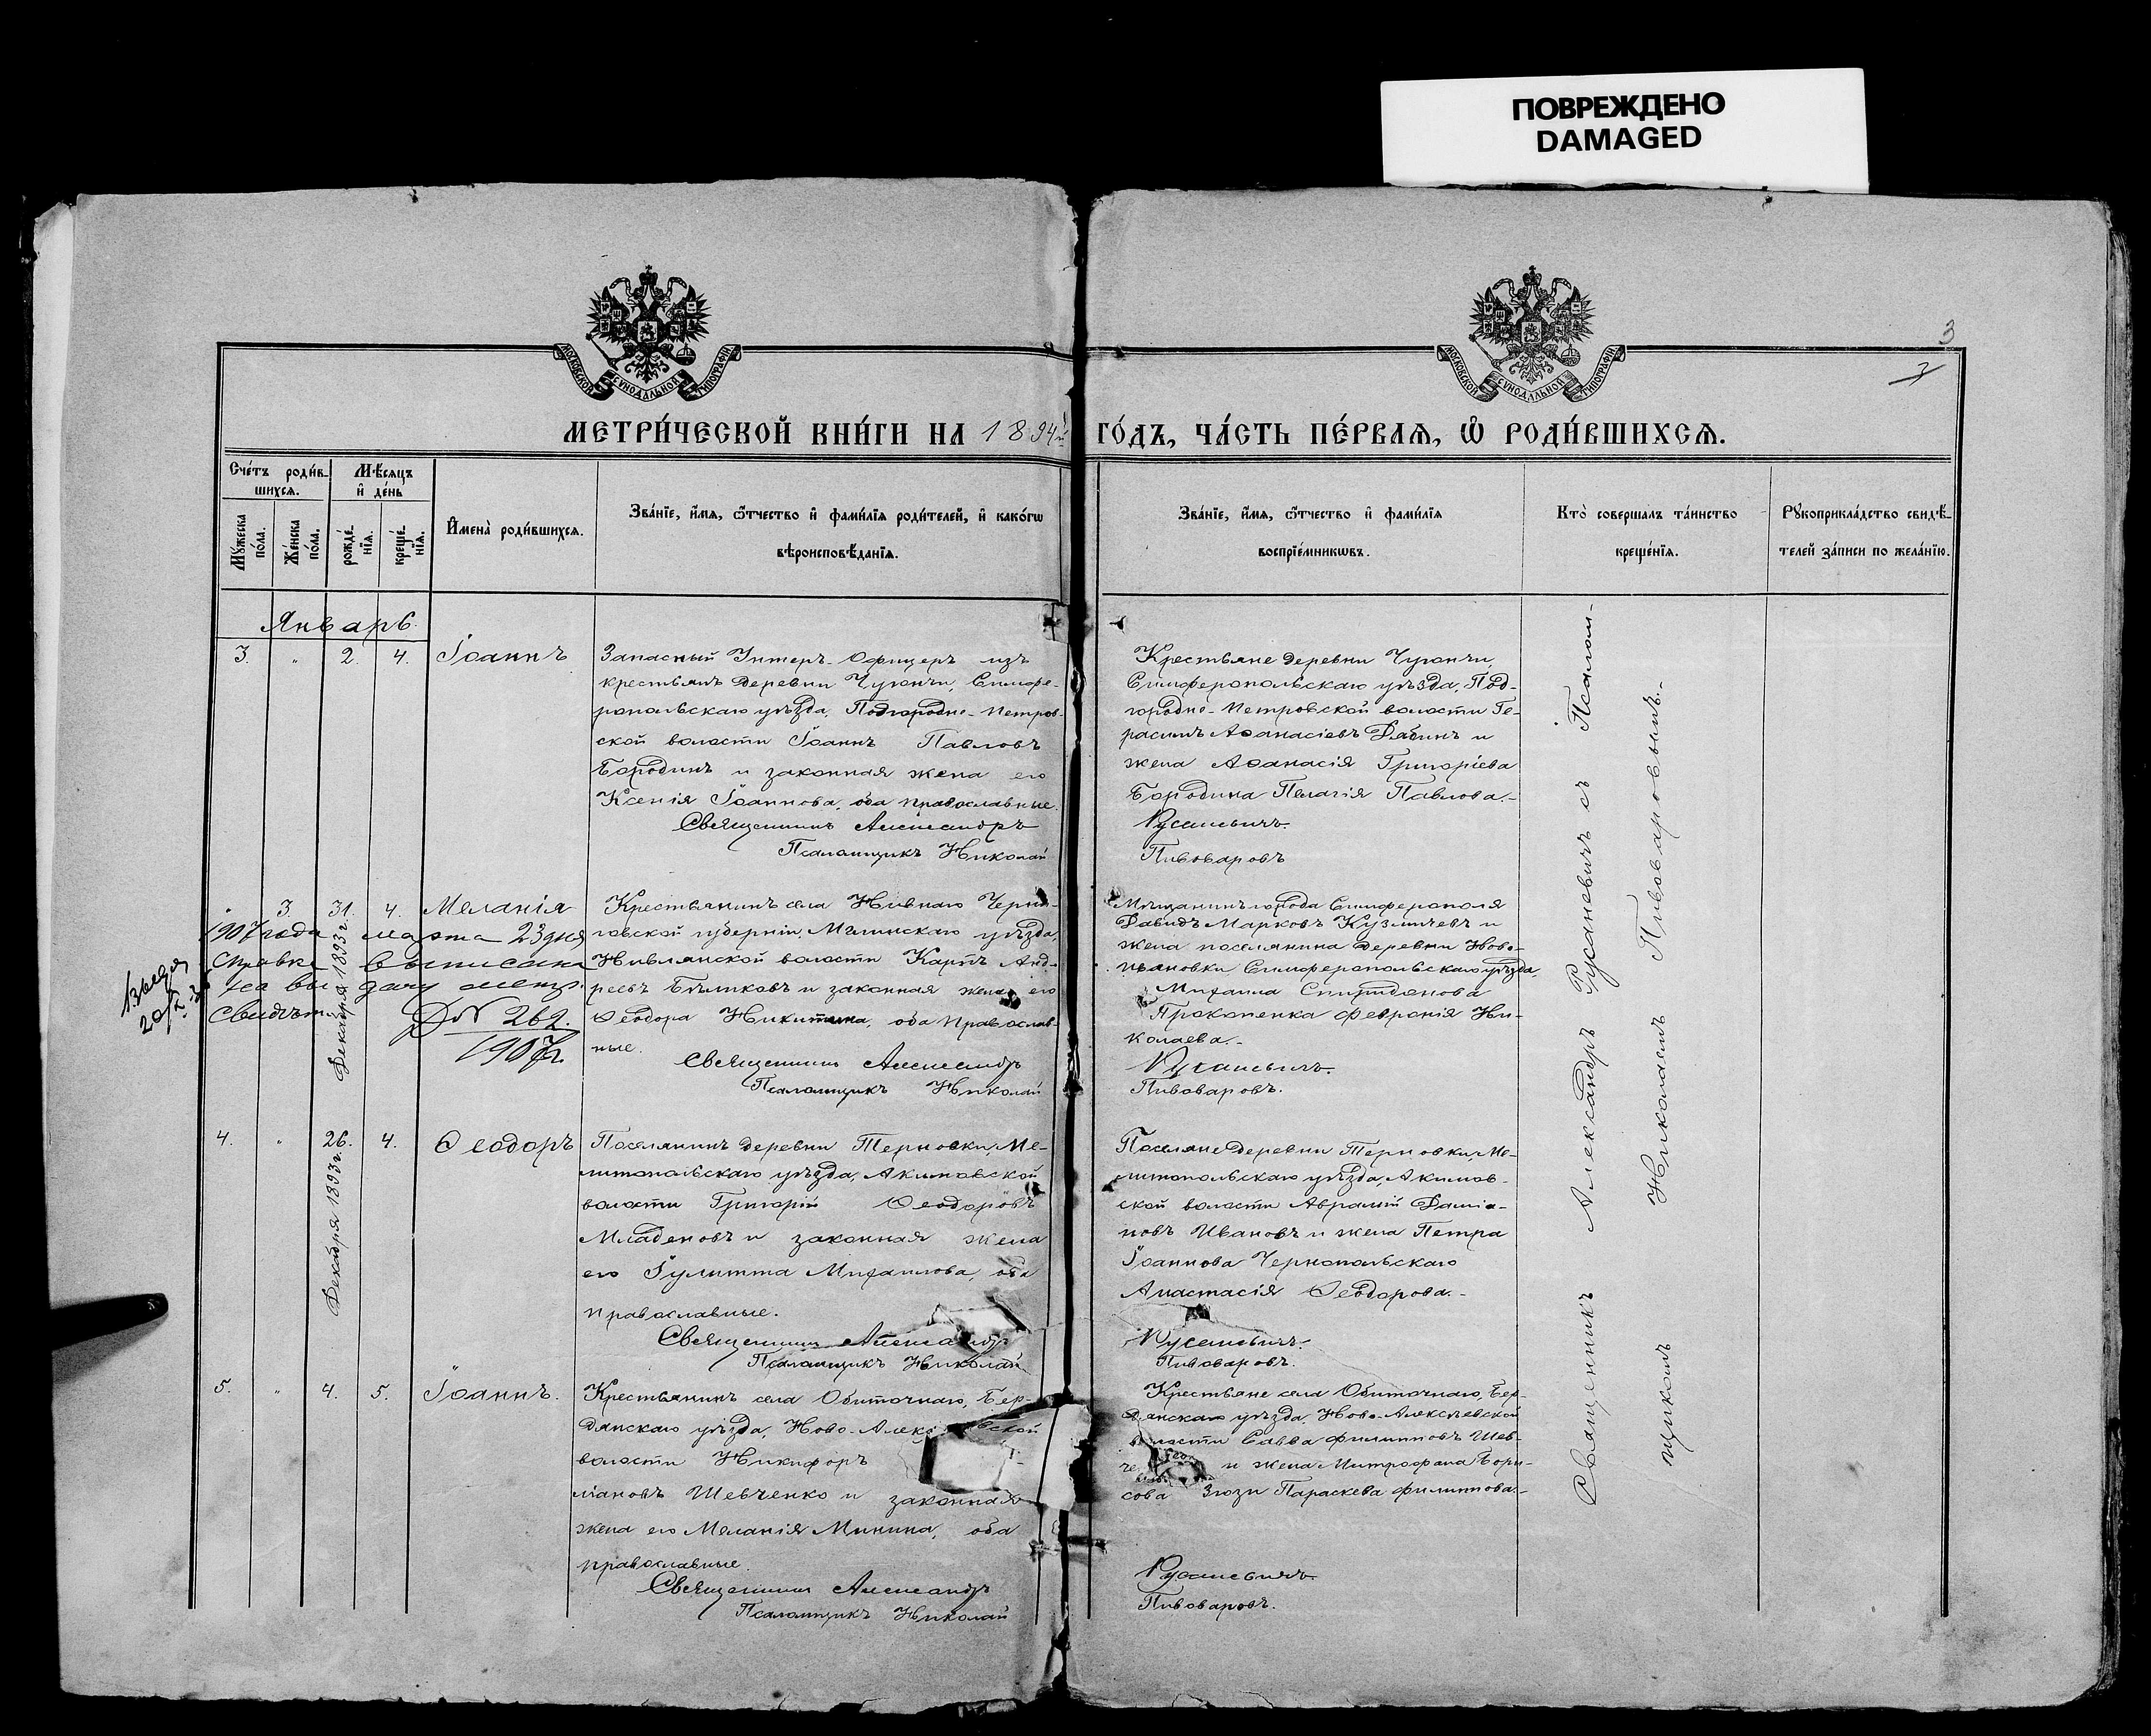 ПОВРЕЖДЕНО
DAMAGED
МОСКОВСКОЙ СУНОДАЛЬНОЙ ТИПОГРАФІИ
МОСКОВСКОЙ СУНОДАЛЬНОЙ ТИПОГРАФІИ
3
3
МЕТРИ́ЧЕСКОЙ КНИ́ГИ НА 1894й ГО́ДЪ, ЧА́СТЬ ПЕ́РВАЯ, Ѽ РОДИ́ВШИХСЯ.
Сче́тъ роди́в-
шихся.
Мѣ́сяцъ
и҆ де́нь
Мꙋ́жеска по́ла.
Же́нска по́ла.
рожде́нїѧ.
креще́нїѧ.
И҆мена̀ роди́вшихся.
Зва́нїе, и҆́мя, ѻ҆́тчество и҆ фами́лїя роди́телей, и҆ како́гѡ
вѣроисповѣ́данїя.
Зва́нїе, и҆́мя, ѻ҆́тчество и҆ фами́лїя
воспрїе́мникѡвъ.
Кто̀ соверша́лъ та́инство
креще́нїя.
Рꙋкоприкла́дство свидѣ́-
телей за́писи по жела́нїю.
Январь.
3. " 2. 4. Іоаннъ
Запасный Унтеръ-Офицеръ изъ
крестьянъ деревни Чуюнчи, Симфе-
ропольскаго уѣзда, Подгородне-Петров-
ской волости Іоаннъ Павловъ
Бородинъ и законная жена его
Ксенія Іоаннова, оба православные.
Священникъ Александръ
Псаломщикъ Николай
Крестьяне деревни Чуюнчи,
Симферопольскаго уѣзда, Под-
городне-Петровской волости Ге-
расимъ Аѳанасіевъ Бабинъ и
жена Аѳанасія Григоріева
Бородина Пелагія Павлова.-
Русаневичъ.
Пивоваровъ
" 3. 31. 4. Меланія
Декабря 1893 г.
1907 года марта 23 дня
справка выписана
на вы дачу метр.
свидѣт.
Д№ 262.
1907 г.
Крестьянинъ села Нивнаго Черни-
говской губерніи, Мглинскаго уѣзда,
Нивлянской волости Карпъ Анд-
реевъ Бѣликовъ и законная жена его
Ѳеодора Никитина, оба Православ-
ные.
Священникъ Александръ
Псаломщикъ Николай
Мѣщанинъ города Симферополя
Давидъ Марковъ Кузмичевъ и
жена поселянина деревни Ново-
ивановки Симферопольскаго уѣзда,
Михаила Спиридонова
Прокопенка Февронія Ни-
колаева.-
Русаневичъ.
Пивоваровъ.
4. " 26. 4. Ѳеодоръ
Декабря 1893 г.
Поселянинъ деревни Терновки, Ме-
литопольскаго уѣзда, Акимовской
волости Григорій Ѳеодоровъ
Младеновъ и законная жена
его Іулитта Михаилова, оба
православные.
Священникъ Александръ
Псаломщикъ Николай
Поселяне деревни Терновки, Ме-
литопольскаго уѣзда, Акимов-
ской волости Аврамій Даміа-
новъ Ивановъ и жена Петра
Іоаннова Чернопольскаго
Анастасія Ѳеодорова.-
Русаневичъ.
Пивоваровъ.
5. " 4. 5. Іоаннъ.
Крестьянинъ села Обиточнаго, Бер-
дянскаго уѣзда, Ново-Алекс вской
волости Никифоръ
ліановъ Шевченко и законная
жена его Меланія Минина, оба
православные.
Священникъ Александръ
Псаломщикъ Николай
Крестьяне села Обиточнаго, Бер-
дянскаго уѣзда, Ново-Алексѣевской
волости Савва Филипповъ Шев-
че и жена Митрофана Бори-
сова Зюзи Параскева Филиппова.-
Русаневичъ.
Пивоваровъ.
Священникъ Александръ Русаневичъ съ Псалом-
щикомъ Николаемъ Пивоваровымъ.-